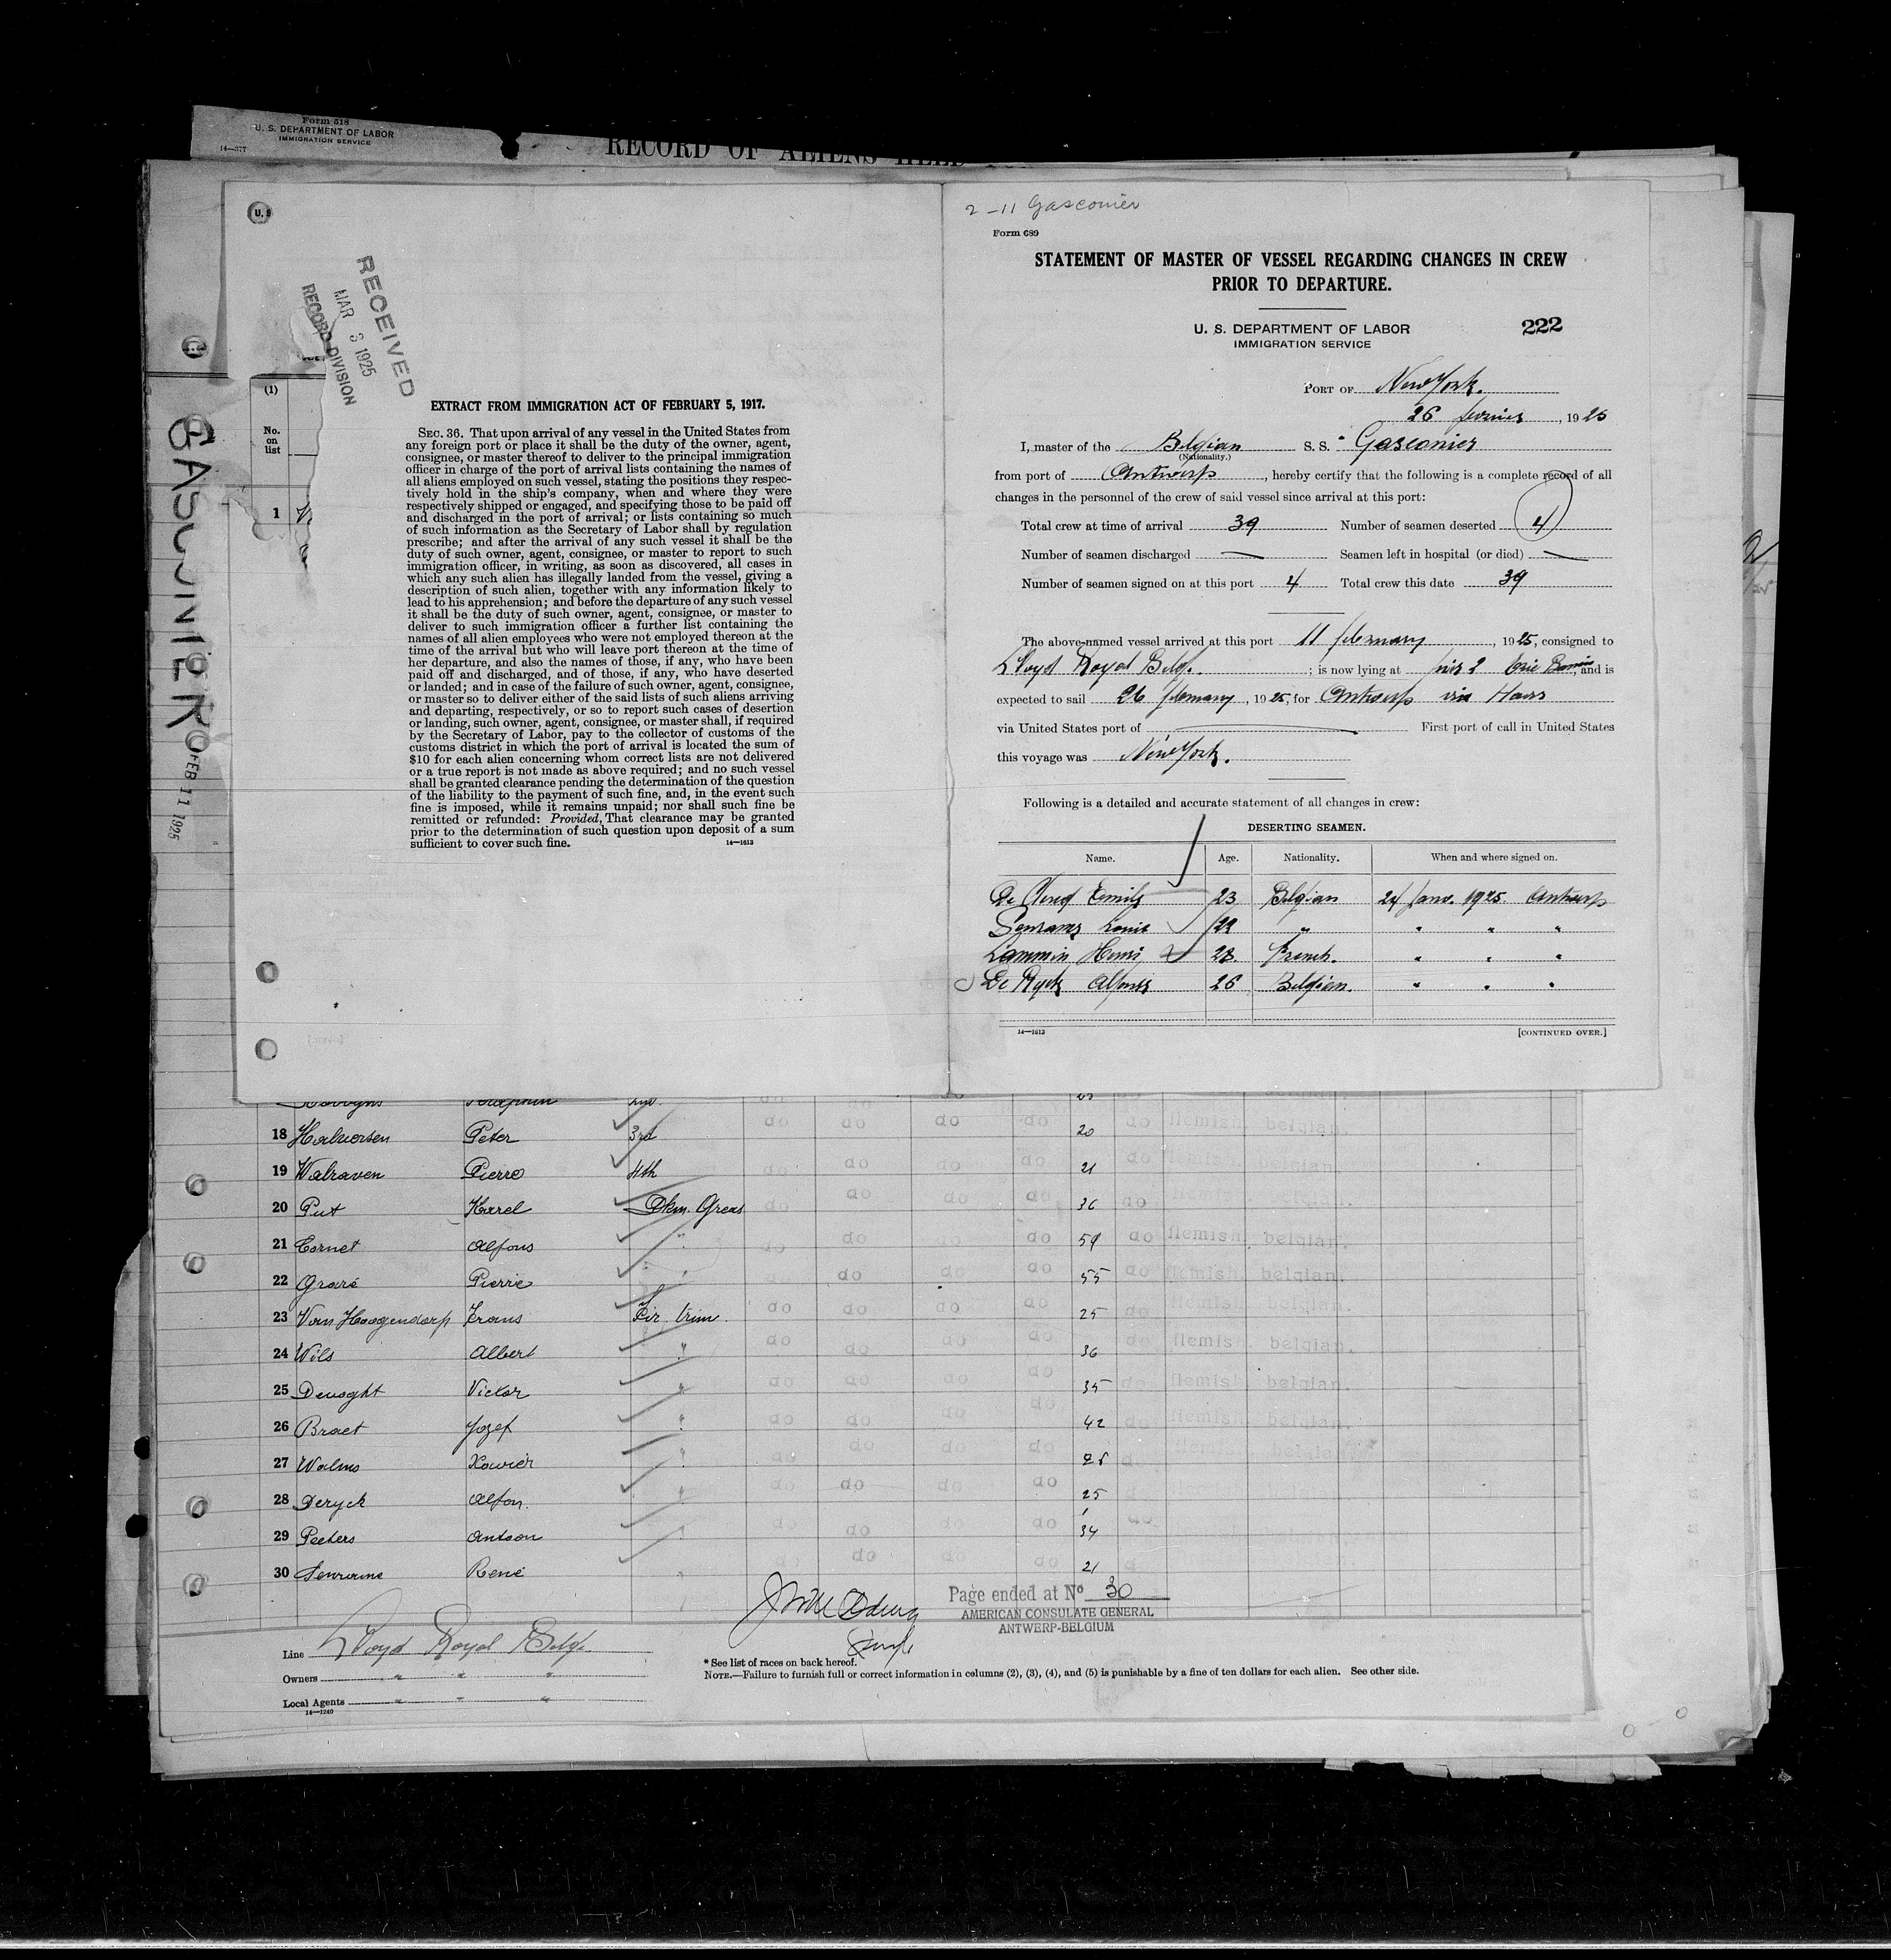 Form 518
U. S. DEPARTMENT OF LABOR
IMMIGRATION SERVICE
14—377
RECORD OF ALIENS HELD
U. S
RECEIVED
MAR 3 1925
RECORD DIVISION
(1)
No.
on
list
1
GASCONIER
FEB 11 1925
EXTRACT FROM IMMIGRATION ACT OF FEBRUARY 5, 1917.
SEC. 36. That upon arrival of any vessel in the United States from
any foreign port or place it shall be the duty of the owner, agent,
consignee, or master thereof to deliver to the principal immigration
officer in charge of the port of arrival lists containing the names of
all aliens employed on such vessel, stating the positions they respec-
tively hold in the ship's company, when and where they were
respectively shipped or engaged, and specifying those to be paid off
and discharged in the port of arrival; or lists containing so much
of such information as the Secretary of Labor shall by regulation
prescribe; and after the arrival of any such vessel it shall be the
duty of such owner, agent, consignee, or master to report to such
immigration officer, in writing, as soon as discovered, all cases in
which any such alien has illegally landed from the vessel, giving a
description of such alien, together with any information likely to
lead to his apprehension; and before the departure of any such vessel
it shall be the duty of such owner, agent, consignee, or master to
deliver to such immigration officer a further list containing the
names of all alien employees who were not employed thereon at the
time of the arrival but who will leave port thereon at the time of
her departure, and also the names of those, if any, who have been
paid off and discharged, and of those, if any, who have deserted
or landed; and in case of the failure of such owner, agent, consignee,
or master so to deliver either of the said lists of such aliens arriving
and departing, respectively, or so to report such cases of desertion
or landing, such owner, agent, consignee, or master shall, if required
by the Secretary of Labor, pay to the collector of customs of the
customs district in which the port of arrival is located the sum of
$10 for each alien concerning whom correct lists are not delivered
or a true report is not made as above required; and no such vessel
shall be granted clearance pending the determination of the question
of the liability to the payment of such fine, and, in the event such
fine is imposed, while it remains unpaid; nor shall such fine be
remitted or refunded: Provided, That clearance may be granted
prior to the determination of such question upon deposit of a sum
sufficient to cover such fine.
14—1613
2-11 Gasconier
Form 689
STATEMENT OF MASTER OF VESSEL REGARDING CHANGES IN CREW
PRIOR TO DEPARTURE.
U. S. DEPARTMENT OF LABOR
IMMIGRATION SERVICE
222
PORT OF New York.
26 fevrier, 1925
I, master of the Belgian S. S. Gasconier
(Nationality.)
from port of Antwerp, hereby certify that the following is a complete record of all
changes in the personnel of the crew of said vessel since arrival at this port:
Total crew at time of arrival 39 Number of seamen deserted 4
Number of seamen discharged — Seamen left in hospital (or died) —
Number of seamen signed on at this port 4 Total crew this date 39
The above-named vessel arrived at this port 11 february, 1925, consigned to
Lloyd Royal Belge. ; is now lying at pier 2 Erie Basin, and is
expected to sail 26 february, 1925, for Antwerp via Havre
via United States port of — First port of call in United States
this voyage was New York.
Following is a detailed and accurate statement of all changes in crew:
DESERTING SEAMEN.
Name. Age. Nationality. When and where signed on.
De Clercq Emile 23 Belgian 24 Janv. 1925. Antwerp
Louis 22 " " " "
Lammin Henri 28. French. " " "
De Ryck Alfons 26 Belgian. " " "
14—1613
[CONTINUED OVER.]
18 Halversen Peter 3rd do do do do 20 do flemish. belgian.
19 Walraven Pierre 4th do do do do 21 do flemish. belgian.
20 Put Karel Dkm. Greas do do do do 36 do
21 Cornet Alfons " do do do do 59 do flemish. belgian.
22 Graré Pierre " do 55 do flemish. belgian.
23 Van Hoogendorp Frans Fir. trim. do do do do 25 do flemish. belgian.
24 Wils Albert " do do do do 36 do flemish. belgian.
25 Denoght Victor " do do do do 35 do flemish. belgian.
26 Braet Jozef " do do do do 42 do flemish. belgian.
27 Walms Xavier " do do do do do belgian.
28 Deryck Alfon. " do do do do 25
29 Peeters Antoon " do do do do 34 do
30 René " do do do do 21 d
Page ended at No 30
AMERICAN CONSULATE GENERAL
ANTWERP-BELGIUM
Line Lloyd Royal Belge
Owners " " "
Local Agents " " "
14—1240
* See list of races on back hereof.
NOTE.—Failure to furnish full or correct information in columns (2), (3), (4), and (5) is punishable by a fine of ten dollars for each alien. See other side.